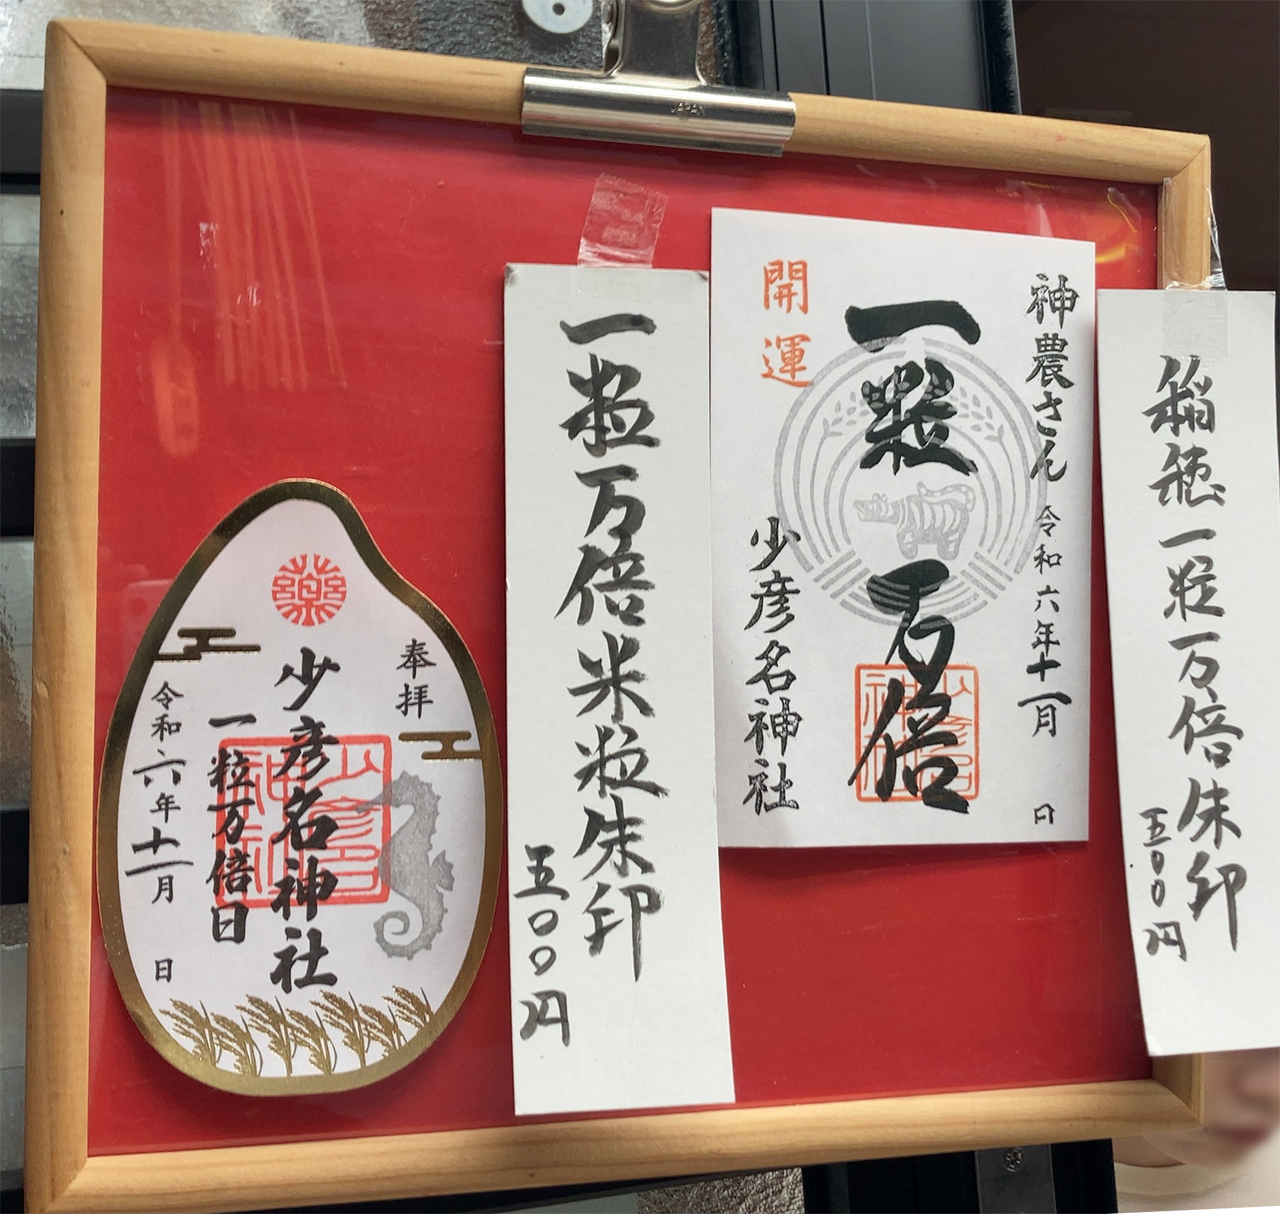 JAPAN
薬
奉拝
少彦名神社
一粒万倍日
令和六年十一月 日
少彦名神社
一粒万倍米粒朱印
五〇〇円
神農さん 令和六年十一月 日
一粒万倍
開運
少彦名神社
少彦名神社
稲穂一粒万倍朱印
五〇〇円